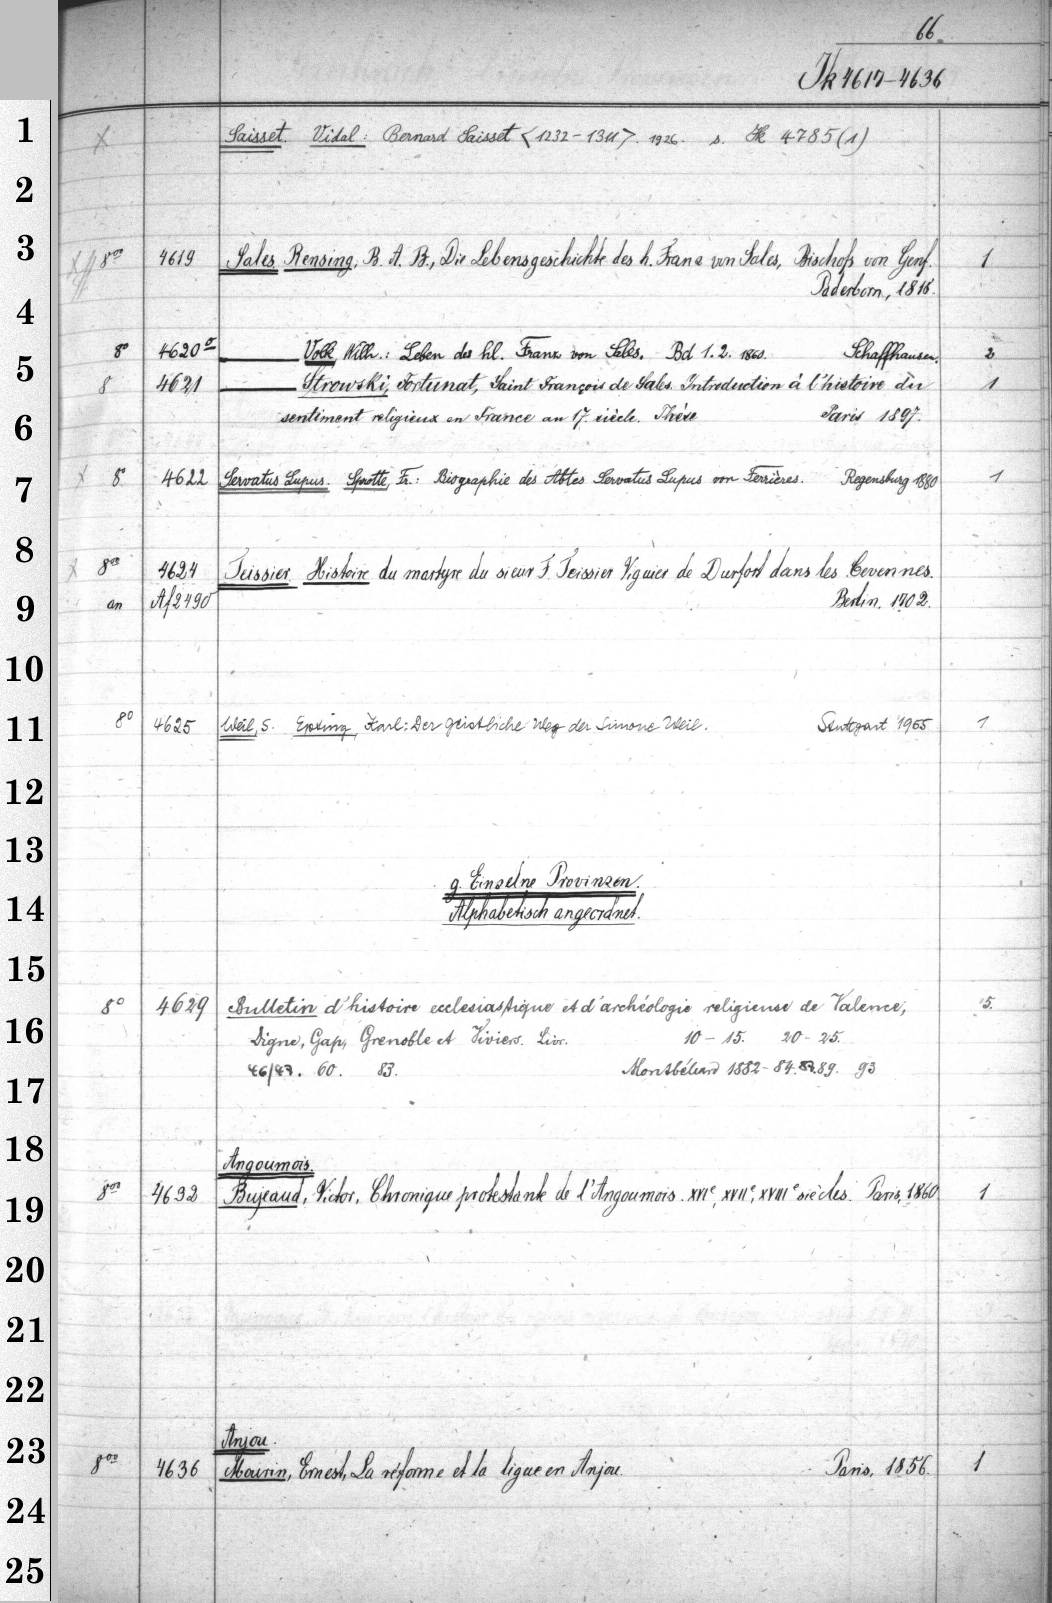 66.
Jk 4617-4636
1
X Saisset. Vidal: Bernard Saisset <1232-1311>. 1926. s. Jk 4785(1)
2
3
8vo 4619 Sales, Rensing, B. A. B., Die Lebensgeschichte des h. Franz von Sales, Bischofs von Genf. 1
Paderborn, 1818.
4
8° 4620a ——— Volk, Wilh.: Leben des hl. Franz von Sales. Bd 1. 2. 1860. Schaffhausen. 2
5
8 4621 ——— Strowski, Fortunat, Saint François de Sales. Introduction à l'histoire du 1
sentiment religieux en France au 17. siècle. Thèse Paris 1897.
6
X 8° 4622 Servatus Lupus. Sprotte, Fr.: Biographie des Abtes Servatus Lupus von Ferrières. Regensburg 1880 1
7
8
X 8vo 4624 Teissier, Histoire du martyre du sieur F. Teissier Viguier de Durfort dans les Cevennes.
an Af 2490 Berlin, 1702.
9
10
8° 4625 Weil, S. Epting, Karl: Der geistliche Weg der Simone Weil. Stuttgart 1955 1
11
12
13
g. Einzelne Provinzen.
14
Alphabetisch angeordnet.
15
8° 4629 Bulletin d'histoire ecclesiastique et d'archéologie religieuse de Valence, 5.
16
Digne, Gap, Grenoble et Viviers. Livr. 10-15. 20-25.
46/47. 60. 83. Montbéliard 1882-84. 87. 89. 93
17
18
Angoumois.
8vo 4632 Bujeaud, Victor, Chronique protestante de l'Angoumois. XVIe, XVIIe, XVIIIe siècles. Paris, 1860 1
19
20
21
22
Anjou.
23
8vo 4636 Mourin, Ernest, La réforme et la ligue en Anjou. Paris, 1856. 1
24
25